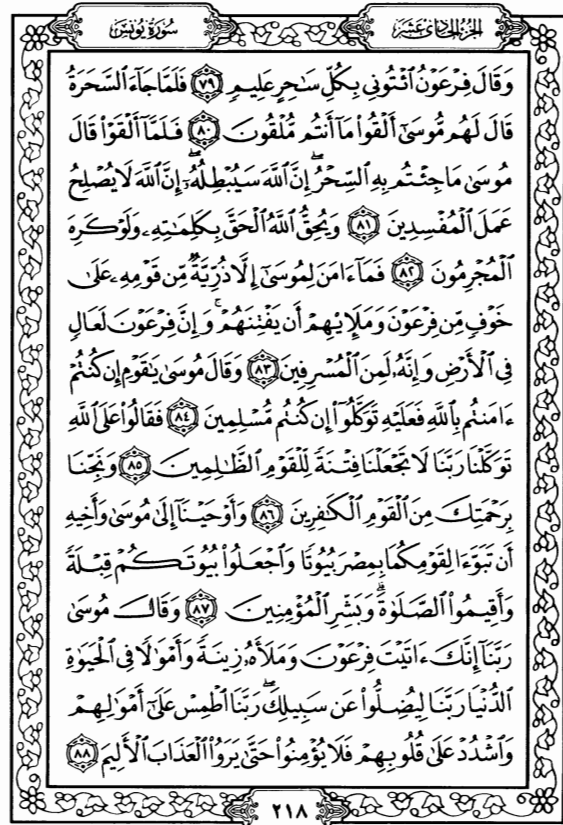 الجزء الحادى عشر
سورة يونس
وَقَالَ فِرْعَوْنُ ٱئْتُونِى بِكُلِّ سَٰحِرٍ عَلِيمٍ ٧٩ فَلَمَّا جَآءَ ٱلسَّحَرَةُ
قَالَ لَهُم مُّوسَىٰٓ أَلْقُوا۟ مَآ أَنتُم مُّلْقُونَ ٨٠ فَلَمَّآ أَلْقَوْا۟ قَالَ
مُوسَىٰ مَا جِئْتُم بِهِ ٱلسِّحْرُ ۖ إِنَّ ٱللَّهَ سَيُبْطِلُهُۥٓ ۖ إِنَّ ٱللَّهَ لَا يُصْلِحُ
عَمَلَ ٱلْمُفْسِدِينَ ٨١ وَيُحِقُّ ٱللَّهُ ٱلْحَقَّ بِكَلِمَٰتِهِۦ وَلَوْ كَرِهَ
ٱلْمُجْرِمُونَ ٨٢ فَمَآ ءَامَنَ لِمُوسَىٰٓ إِلَّا ذُرِّيَّةٌ مِّن قَوْمِهِۦ عَلَىٰ
خَوْفٍ مِّن فِرْعَوْنَ وَمَلَإِي۟هِمْ أَن يَفْتِنَهُمْ ۚ وَإِنَّ فِرْعَوْنَ لَعَالٍ
فِى ٱلْأَرْضِ وَإِنَّهُۥ لَمِنَ ٱلْمُسْرِفِينَ ٨٣ وَقَالَ مُوسَىٰ يَٰقَوْمِ إِن كُنتُمْ
ءَامَنتُم بِٱللَّهِ فَعَلَيْهِ تَوَكَّلُوٓا۟ إِن كُنتُم مُّسْلِمِينَ ٨٤ فَقَالُوا۟ عَلَى ٱللَّهِ
تَوَكَّلْنَا رَبَّنَا لَا تَجْعَلْنَا فِتْنَةً لِّلْقَوْمِ ٱلظَّٰلِمِينَ ٨٥ وَنَجِّنَا
بِرَحْمَتِكَ مِنَ ٱلْقَوْمِ ٱلْكَٰفِرِينَ ٨٦ وَأَوْحَيْنَآ إِلَىٰ مُوسَىٰ وَأَخِيهِ
أَن تَبَوَّءَا لِقَوْمِكُمَا بِمِصْرَ بُيُوتًا وَٱجْعَلُوا۟ بُيُوتَكُمْ قِبْلَةً
وَأَقِيمُوا۟ ٱلصَّلَوٰةَ ۗ وَبَشِّرِ ٱلْمُؤْمِنِينَ ٨٧ وَقَالَ مُوسَىٰ
رَبَّنَآ إِنَّكَ ءَاتَيْتَ فِرْعَوْنَ وَمَلَأَهُۥ زِينَةً وَأَمْوَٰلًا فِى ٱلْحَيَوٰةِ
ٱلدُّنْيَا رَبَّنَا لِيُضِلُّوا۟ عَن سَبِيلِكَ ۖ رَبَّنَا ٱطْمِسْ عَلَىٰٓ أَمْوَٰلِهِمْ
وَٱشْدُدْ عَلَىٰ قُلُوبِهِمْ فَلَا يُؤْمِنُوا۟ حَتَّىٰ يَرَوُا۟ ٱلْعَذَابَ ٱلْأَلِيمَ ٨٨
٢١٨